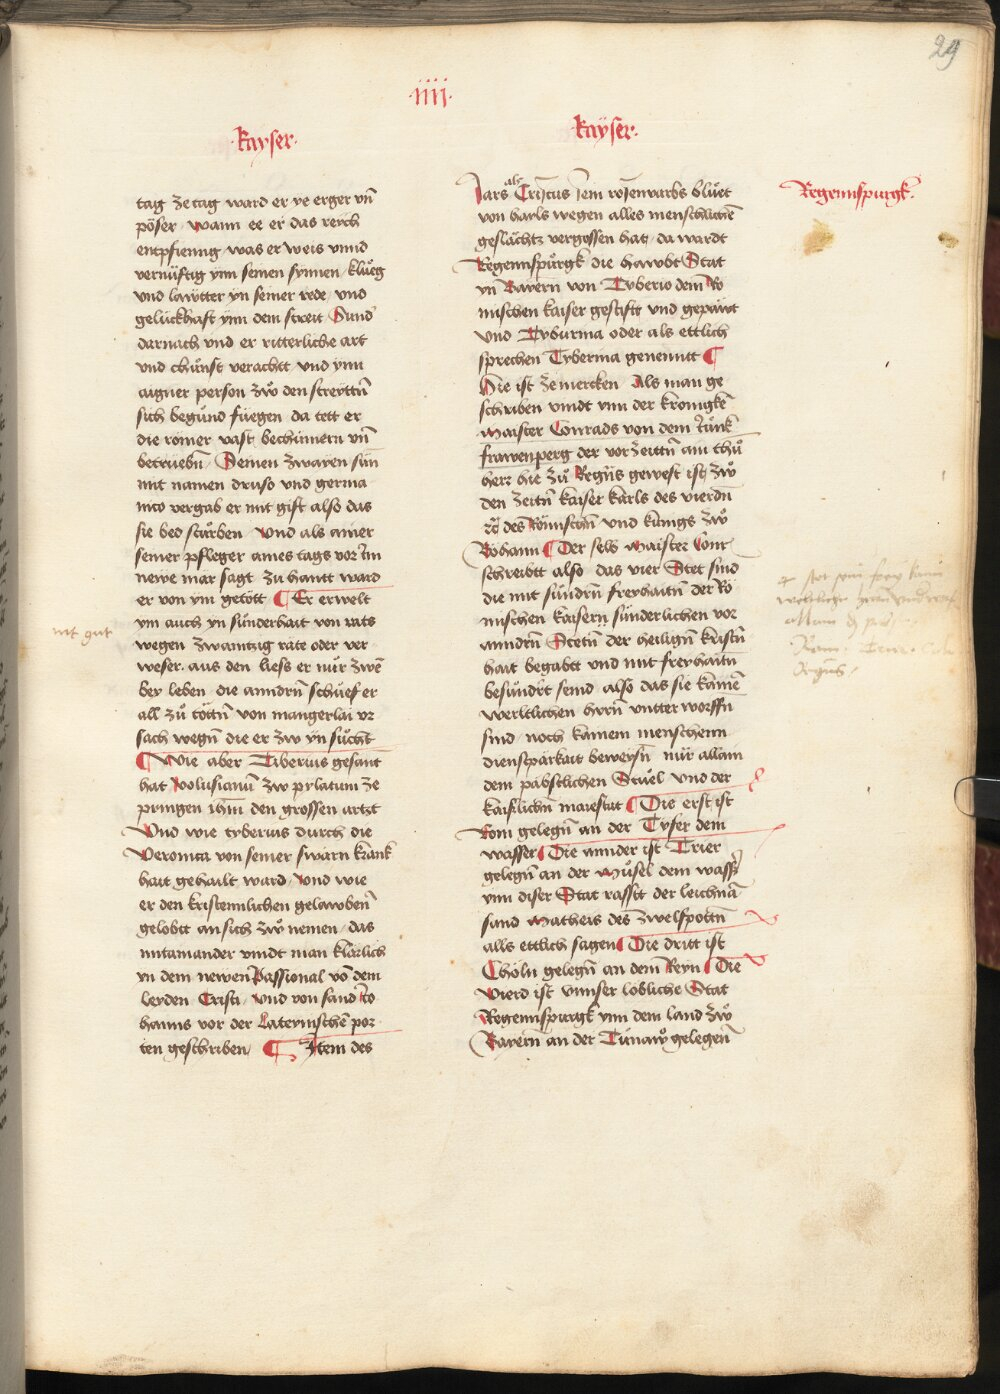 29
·iiii·
·kayser·
tag ze tag ward er ye erger vn̄
pöser / wann ee er das reich
entpfienng was er weis vnnd
vernüftig ynn seinen synnen / klueg
vnd lawtter yn seiner rede / vnd
gelückhaft ynn dem streit Sund
darnach vnd er ritterliche art
vnd chünst verachtt vnd ynn
aigner person zwo den streyttn̄
sich begund füegen da tett er
die romer vast bechümern vn̄
betruebn̄ / Seinen zwaien sün
mit namen druso vnd germa
nico vergab er mit gift also das
sie bed sturben / Vnd als ainer
seiner pfleger aines tags vor im
newe mär sagt zu hantt ward
er von ym getott ¶ Er erwelt
ym auch yn sunderhait von rats
wegen zwaintzig räte oder ver
weser · aus den liess er nür zwen̄
bey leben / die anndrn̄ schuef er
all zu tottn̄ von mangerlai vr
sach wegn̄ die er zw yn sucht
¶ Wie aber Tiberius gesant
hat Volusianū zw pylatum ze
pringen ihm den grossen artzt
Vnd wie tyberius durch die
Veronica von seiner swarn krank
hait gehailt ward / Vnd wie
er den kristennlichen gelawben̄
gelobtt an sich zw nemen / das
mitainander vindt man klarlich
yn dem newen Passional von̄ dem
leyden Cristi / Vnd von sand Jo
hanns vor der Laternischen̄ por
ten geschriben / ¶ Item des
nit gut
·kayser·
Jars als Cristus sein rosenvarbs bluet
von hails wegen alles menschlichen̄
geslächtz vergossen hat / da wardt
Regennspurgk die hawbt Stat
yn Bayern von Tyberio dem Ro
mischen kaiser gestift vnd gepawt
vnd Tyburnia oder als ettlich
sprechen Tyberina genenntt ¶
Hie ist ze mercken Als man ge
schriben vindt ynn der kronigken̄
maister Conrads von dem
frawenperg der vor zeittn̄ ain thu͂
herr hie zu Regn̄s gewest ist zwo
den zeitn̄ kaiser karls des vierdn̄
des Romischn̄ vnd kunigs zwo
Bohann ¶ Der selb maister Conr
schreibtt also das vier Stet sind
die mit sundrn̄ freyhaitn̄ der Ro
mischen kaisern sünderlichen vor
anndrn̄ Stetn̄ der heilign̄ kristn̄
hait begabtt vnd mit freyhaitn̄
besundrt seind also das sie kainen̄
werltlichen hrrn̄ vntter worffn̄
sind / noch kainem menschenn
dienspärkait beweysn̄ nür allain
dem päbstlichen Stuel vnd der
kaiserlichn̄ maiestat ¶ Die erst ist
Rom gelegn̄ an der Tyfer dem
wasser ¶ Die annder ist Trier
gelegn̄ an der Musel dem wasser
ynn diser Stat rasstt der leichnā
sand Matheis des zwelfpottn̄
alls ettlich sagen ¶ Die dritt ist
Chöln gelegn̄ an dem Reyn ¶ Die
Vierd ist vnnser lobliche Stat
Regennspurgk ynn dem land zwo
Bayern̄ an der Tunaw gelegen̄
Regennspurgk·